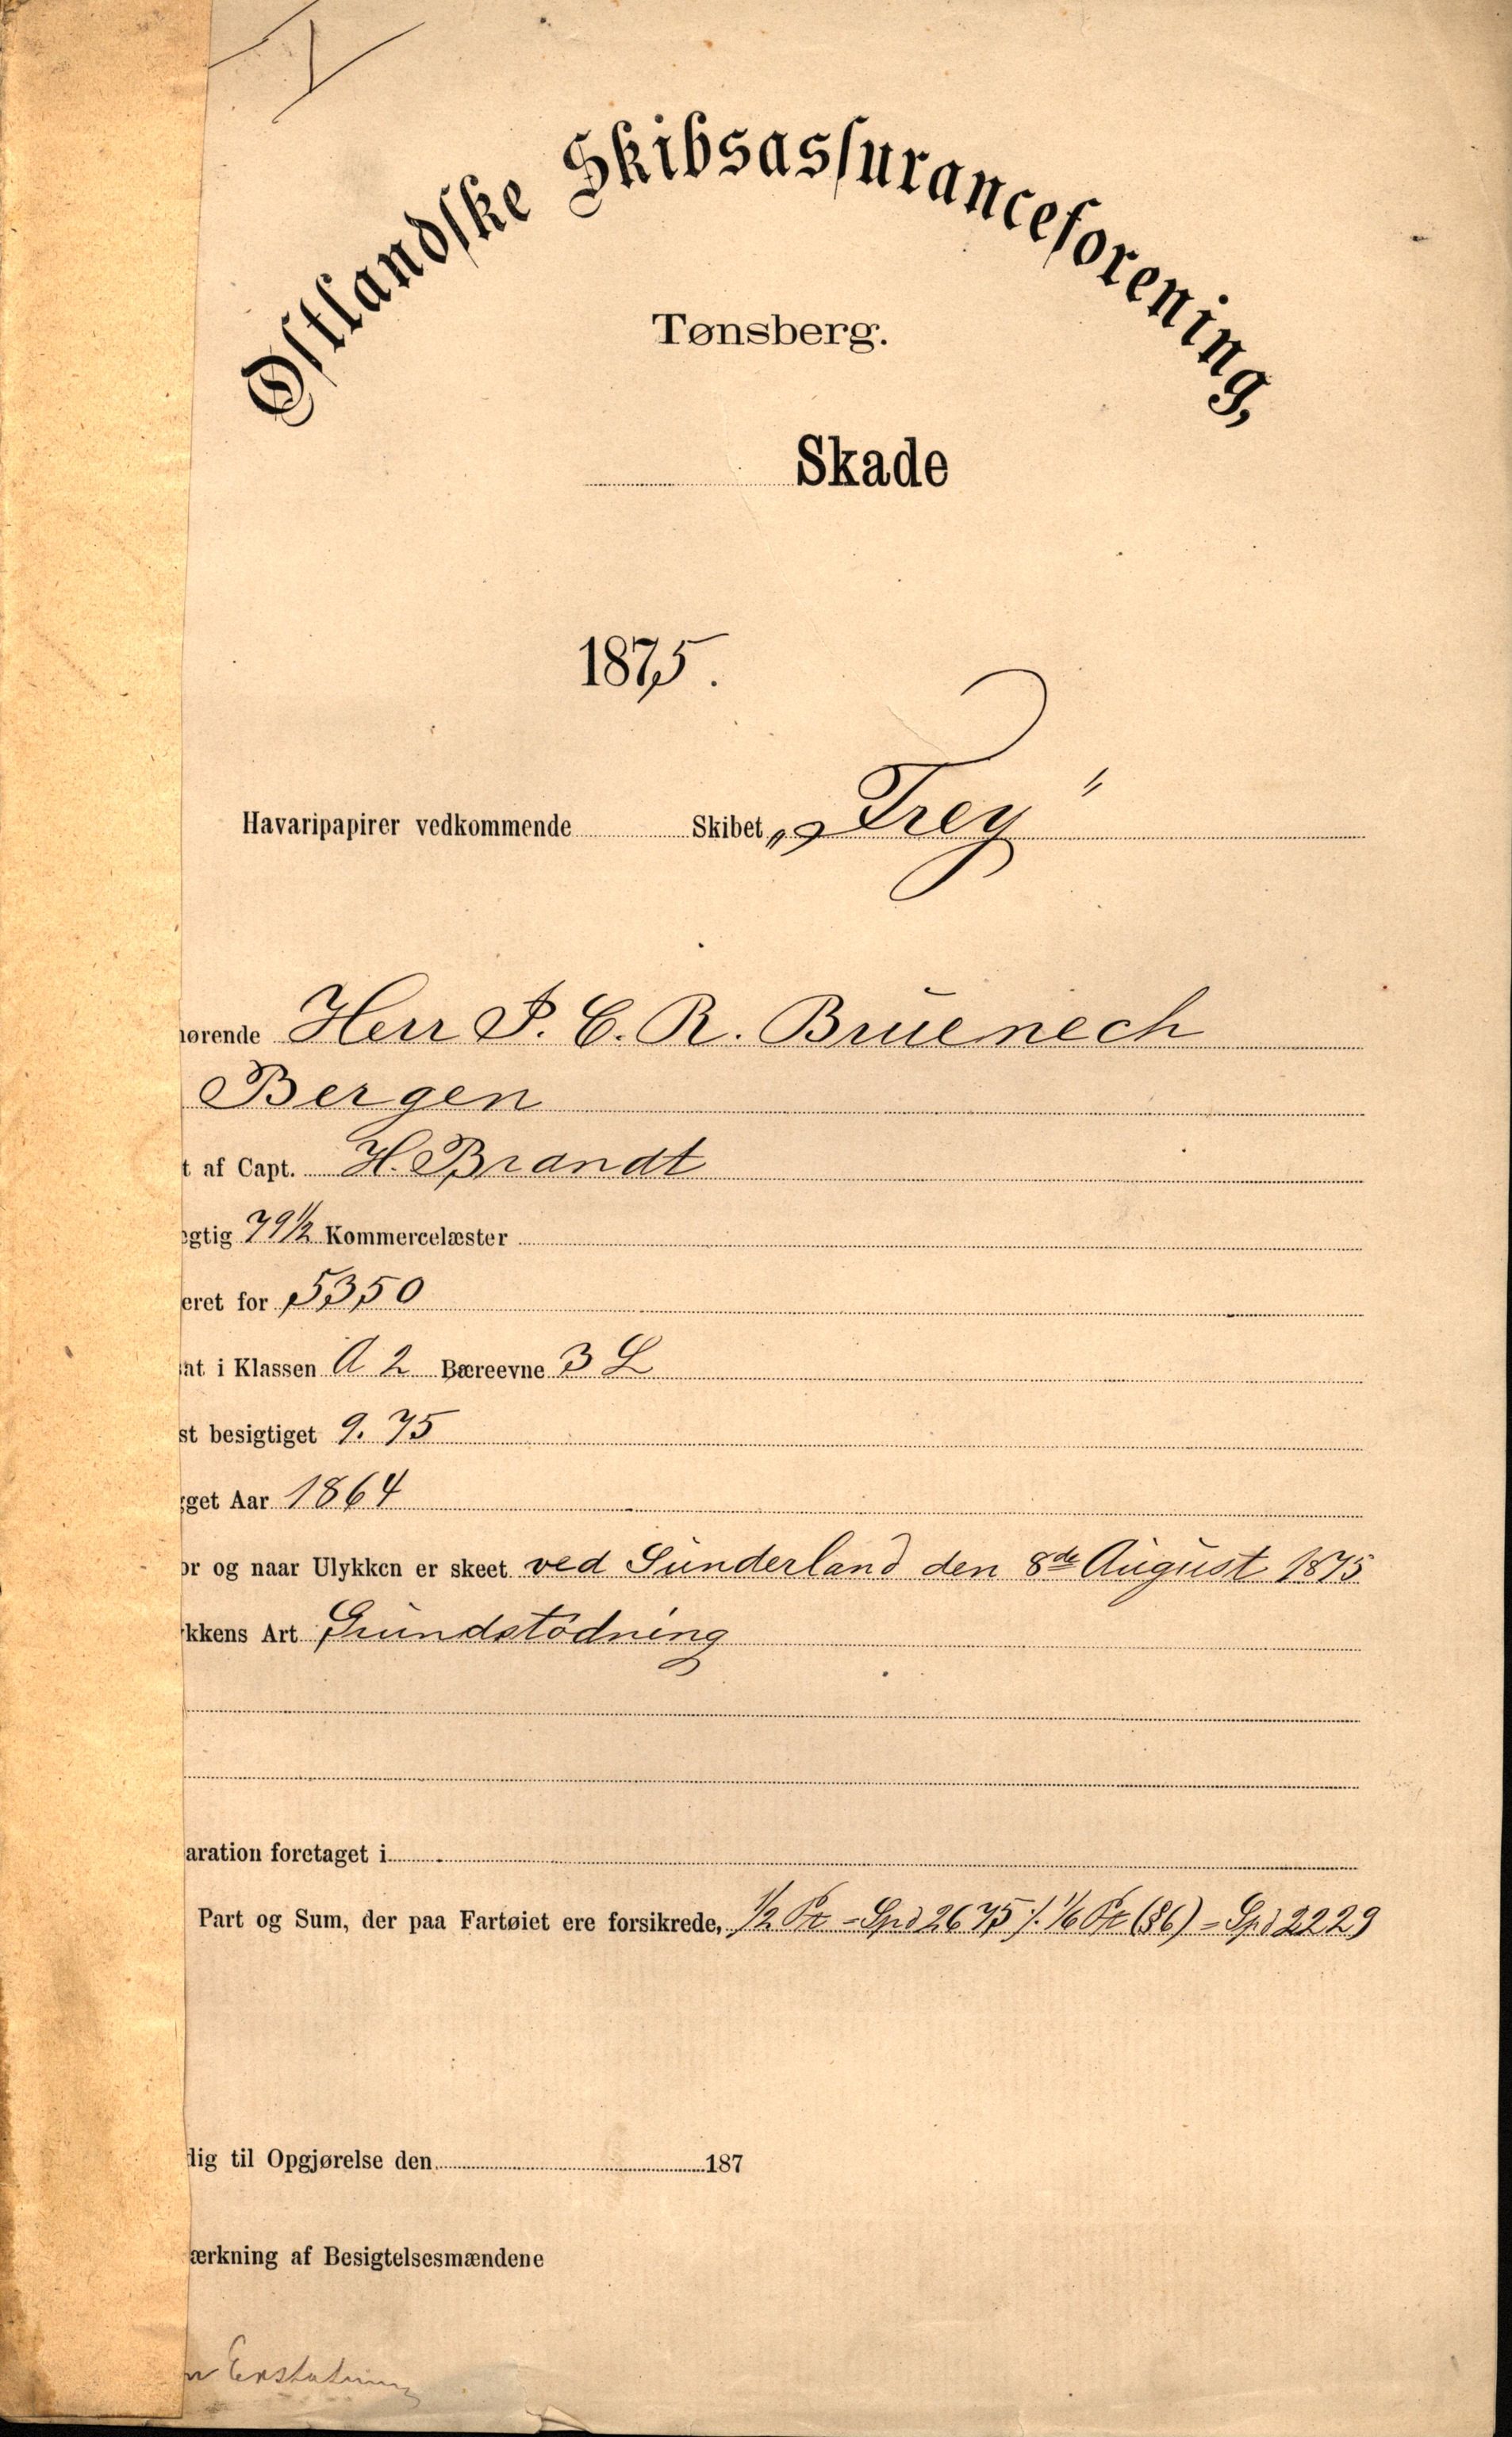 Østlandske Skibsassuranceforening,
Tønsberg.
Skade
1875.
Havaripapirer vedkommende Skibet „Frey"
hørende Herr P. C. R. Bruenech
Bergen
t af Capt. H. Brandt
ægtig 79½ Kommercelæster
eret for 5350
at i Klassen A 2 Bæreevne 3 L
st besigtiget 9. 75
gget Aar 1864
or og naar Ulykken er skeet ved Sunderland den 8de August 1875
kkens Art Grundstödning
aration foretaget i
Part og Sum, der paa Fartøiet ere forsikrede, ½ Pt = Spd 2675 ./. 1/6 Pt = Spd 2229
dig til Opgjørelse den 187
ærkning af Besigtelsesmændene